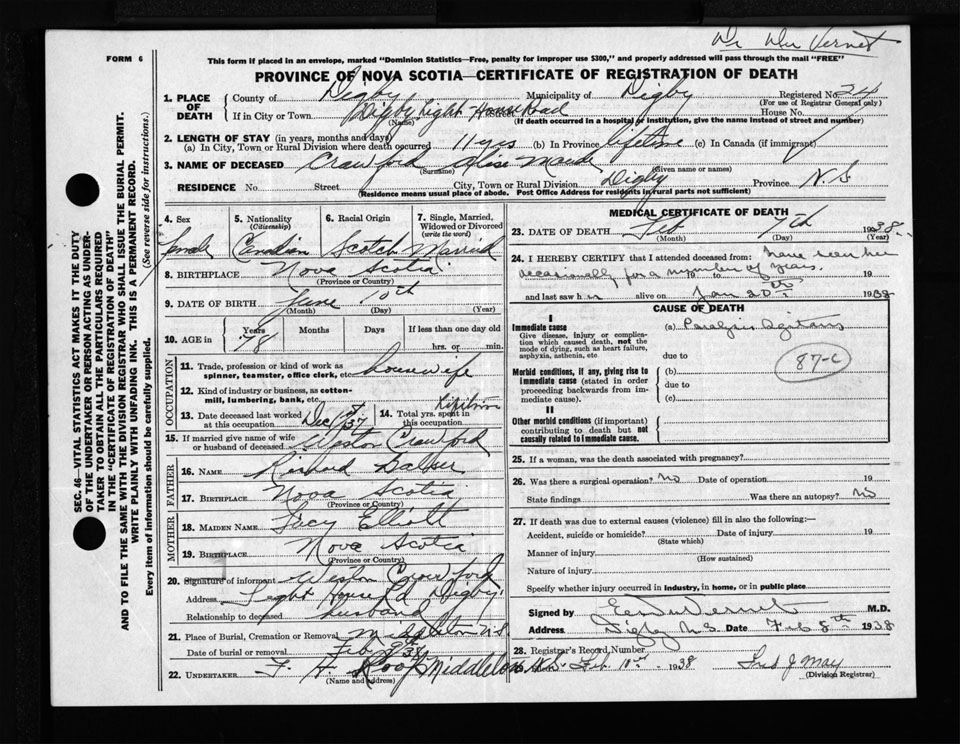 Dr Du Vernet
FORM 6
This form if placed in an envelope, marked "Dominion Statistics—Free, penalty for improper use $300," and properly addressed will pass through the mail "FREE"
PROVINCE OF NOVA SCOTIA—CERTIFICATE OF REGISTRATION OF DEATH
1. PLACE OF DEATH County of Digby Municipality of Digby Registered No. 24
(For use of Registrar General only)
If in City or Town Digby Light House Road House No.
(Name) (If death occurred in a hospital or institution, give the name instead of street and number)
2. LENGTH OF STAY (in years, months and days)
(a) In City, Town or Rural Division where death occurred 11 yrs (b) In Province lifetime (c) In Canada (if immigrant)
3. NAME OF DECEASED Crawford Maude
(Surname) (Given name or names)
RESIDENCE No. Street City, Town or Rural Division Digby Province N.S.
(Residence means usual place of abode. Post Office Address for residents in rural parts not sufficient)
SEC. 46—VITAL STATISTICS ACT MAKES IT THE DUTY
OF THE UNDERTAKER OR PERSON ACTING AS UNDER-
TAKER TO OBTAIN ALL THE PARTICULARS REQUIRED
IN THE "CERTIFICATE OF REGISTRATION OF DEATH"
AND TO FILE THE SAME WITH THE DIVISION REGISTRAR WHO SHALL ISSUE THE BURIAL PERMIT.
WRITE PLAINLY WITH UNFADING INK. THIS IS A PERMANENT RECORD.
Every item of information should be carefully supplied. (See reverse side for instructions.)
4. Sex 5. Nationality (Citizenship) 6. Racial Origin 7. Single, Married, Widowed or Divorced (write the word)
Female Canadian Scotch Married
8. BIRTHPLACE Nova Scotia
(Province or Country)
9. DATE OF BIRTH June 10th
(Month) (Day) (Year)
10. AGE in Years Months Days If less than one day old
78 hrs. or min.
OCCUPATION
11. Trade, profession or kind of work as spinner, teamster, office clerk, etc. housewife
12. Kind of industry or business, as cotton-mill, lumbering, bank, etc.
13. Date deceased last worked at this occupation Dec 1st 37 14. Total yrs. spent in this occupation lifetime
15. If married give name of wife or husband of deceased Weston Crawford
FATHER
16. NAME Richard
17. BIRTHPLACE Nova Scotia
(Province or Country)
MOTHER
18. MAIDEN NAME Lucy Elliott
19. BIRTHPLACE Nova Scotia
(Province or Country)
20. Signature of informant Weston Crawford
Address Light House Rd Digby
Relationship to deceased husband
21. Place of Burial, Cremation or Removal Middleton N.S.
Date of burial or removal Feb 9 38
22. UNDERTAKER F. H. Roop Middleton N.S.
(Name and address)
MEDICAL CERTIFICATE OF DEATH
23. DATE OF DEATH Feb 7th 1938
(Month) (Day) (Year)
24. I HEREBY CERTIFY that I attended deceased from: have seen her
occasionally for a number of years, to 19
and last saw her alive on Jan 20th 1938
CAUSE OF DEATH
I
Immediate cause (a) Paralysis Agitans
Give disease, injury or complication which caused death, not the mode of dying, such as heart failure, asphyxia, asthenia, etc
due to 87-c
Morbid conditions, if any, giving rise to immediate cause (stated in order proceeding backwards from immediate cause).
(b)
due to
(c)
II
Other morbid conditions (if important) contributing to death but not causally related to immediate cause.
25. If a woman, was the death associated with pregnancy?
26. Was there a surgical operation? No Date of operation 19
State findings Was there an autopsy? No
27. If death was due to external causes (violence) fill in also the following:—
Accident, suicide or homicide? Date of injury 19
(State which)
Manner of injury
(How sustained)
Nature of injury
Specify whether injury occurred in industry, in home, or in public place
Signed by E. DuVernet M.D.
Address Digby N.S. Date Feb 8th 1938
28. Registrar's Record Number
Feb 10th 1938 Fred J May
(Division Registrar)